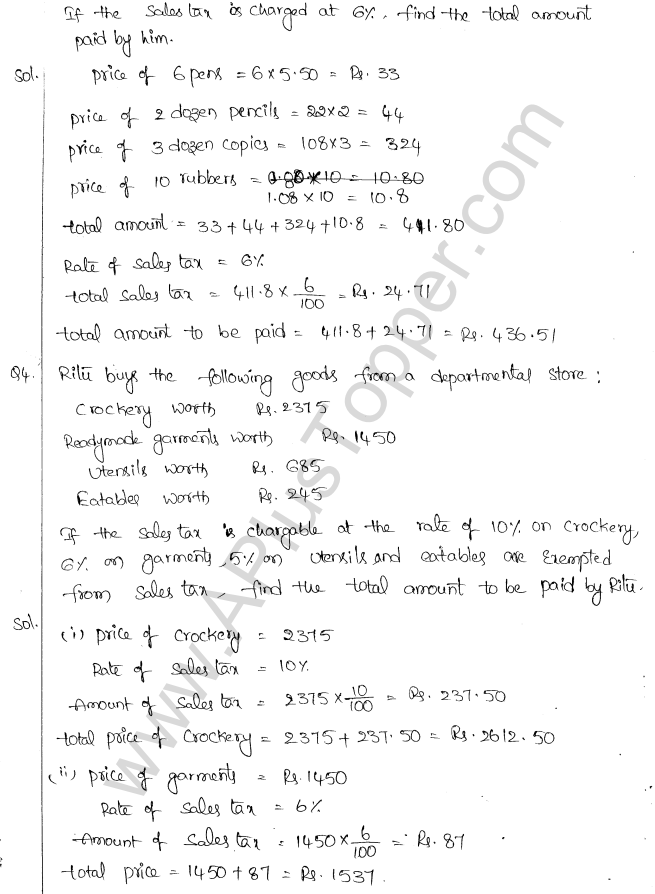 If the sales tax is charged at 6%, find the total amount
paid by him.
Sol. price of 6 pens = 6 x 5.50 = Rs. 33
price of 2 dozen pencils = 22x2 = 44
price of 3 dozen copies = 108x3 = 324
price of 10 rubbers = 1.08 x 10 = 10.80
1.08 x 10 = 10.8
total amount = 33 + 44 + 324 + 10.8 = 411.80
Rate of sales tax = 6%
total sales tax = 411.8 x 6/100 = Rs. 24.71
total amount to be paid = 411.8 + 24.71 = Rs. 436.51
Q4. Ritu buys the following goods from a departmental store :
Crockery worth Rs. 2375
Readymade garments worth Rs. 1450
Utensils worth Rs. 685
Eatables worth Rs. 245
If the sales tax is chargable at the rate of 10% on crockery,
6% on garments, 5% on utensils and eatables are Exempted
from sales tax, find the total amount to be paid by Ritu.
Sol. (i) price of crockery = 2375
Rate of sales tax = 10%
Amount of sales tax = 2375 x 10/100 = Rs. 237.50
total price of Crockery = 2375 + 237.50 = Rs. 2612.50
(ii) price of garments = Rs. 1450
Rate of sales tax = 6%
Amount of sales tax = 1450 x 6/100 = Rs. 87
total price = 1450 + 87 = Rs. 1537.
www.APlusTopper.com